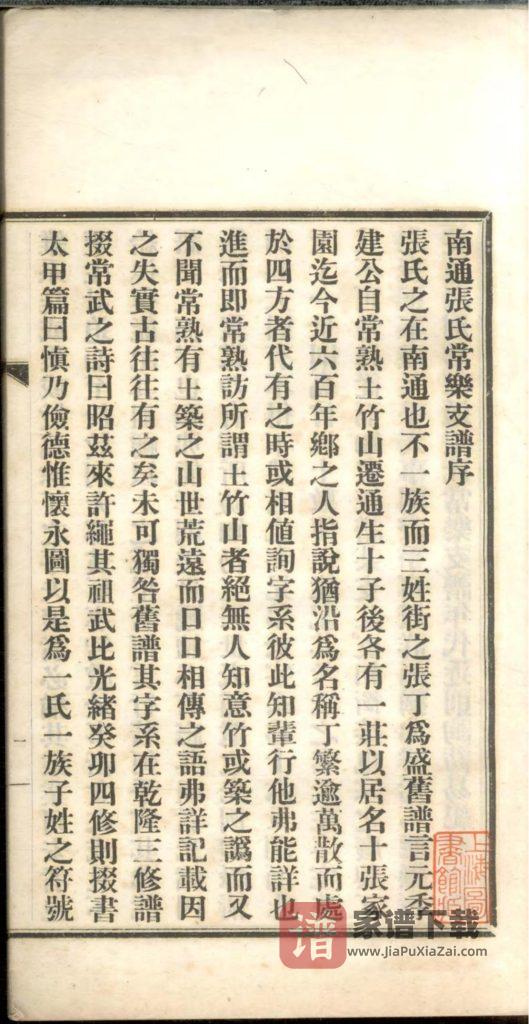 南通張氏常樂支譜序
張氏之在南通也不一族而三姓街之張丁爲盛舊譜言元季
建公自常熟土竹山遷通生十子後各有一莊以居名十張家
園迄今近六百年鄉之人指說猶沿爲名稱丁繁逾萬散而處
於四方者代有之時或相値詢字系彼此知輩行他弗能詳也
進而即常熟訪所謂土竹山者絕無人知意竹或築之譌而又
不聞常熟有土築之山世荒遠而口口相傳之語弗詳記載因
之失實古往往有之矣未可獨咎舊譜其字系在乾隆三修譜
掇常武之詩曰昭茲來許繩其祖武比光緒癸卯四修則掇書
太甲篇曰愼乃儉德惟懷永圖以是爲一氏一族子姓之符號
上海圖書館藏
谱 家谱下载
www.JiaPuXiaZai.com